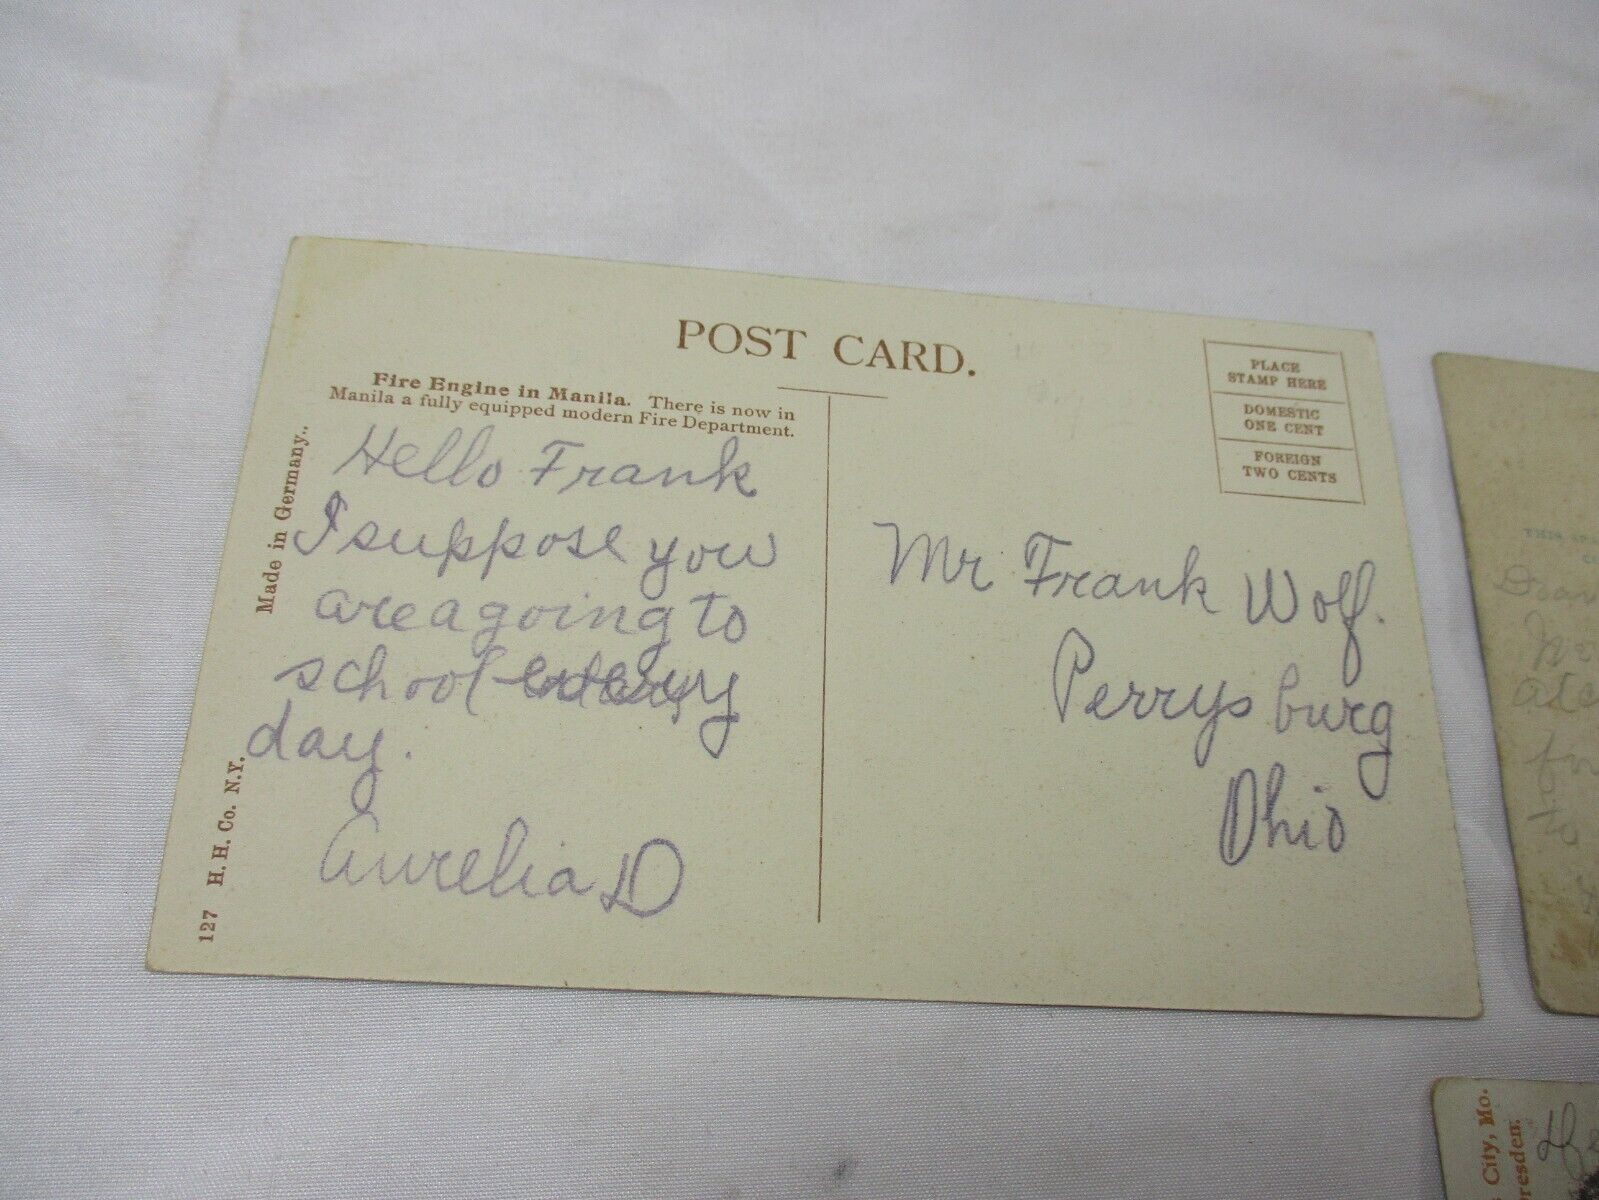 POST CARD.
Fire Engine in Manila. There is now in
Manila a fully equipped modern Fire Department.
Hello Frank
I suppose you
are a going to
school every
day.
Aurelia D
Made in Germany..
127 H. H. Co. N.Y.
PLACE
STAMP HERE
DOMESTIC
ONE CENT
FOREIGN
TWO CENTS
Mr Frank Wolf.
Perrysburg
Ohio
THIS
to
City, Mo.